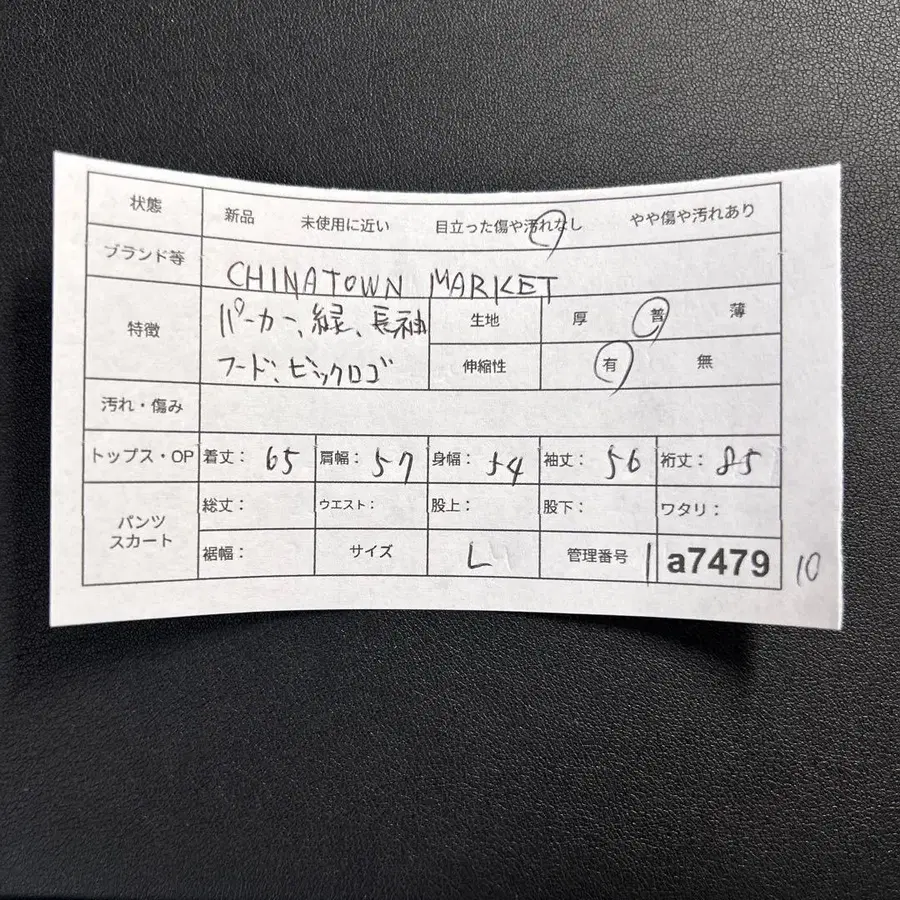 状態 新品 未使用に近い 目立った傷や汚れなし やや傷や汚れあり
ブランド等 CHINATOWN MARKET
特徴 パーカー、緑、長袖 生地 厚 普 薄
フード、ビックロゴ 伸縮性 有 無
汚れ・傷み
トップス・OP 着丈: 65 肩幅: 57 身幅: 54 袖丈: 56 裄丈: 85
パンツ スカート 総丈: ウエスト: 股上: 股下: ワタリ:
裾幅: サイズ L 管理番号 1 a7479 10